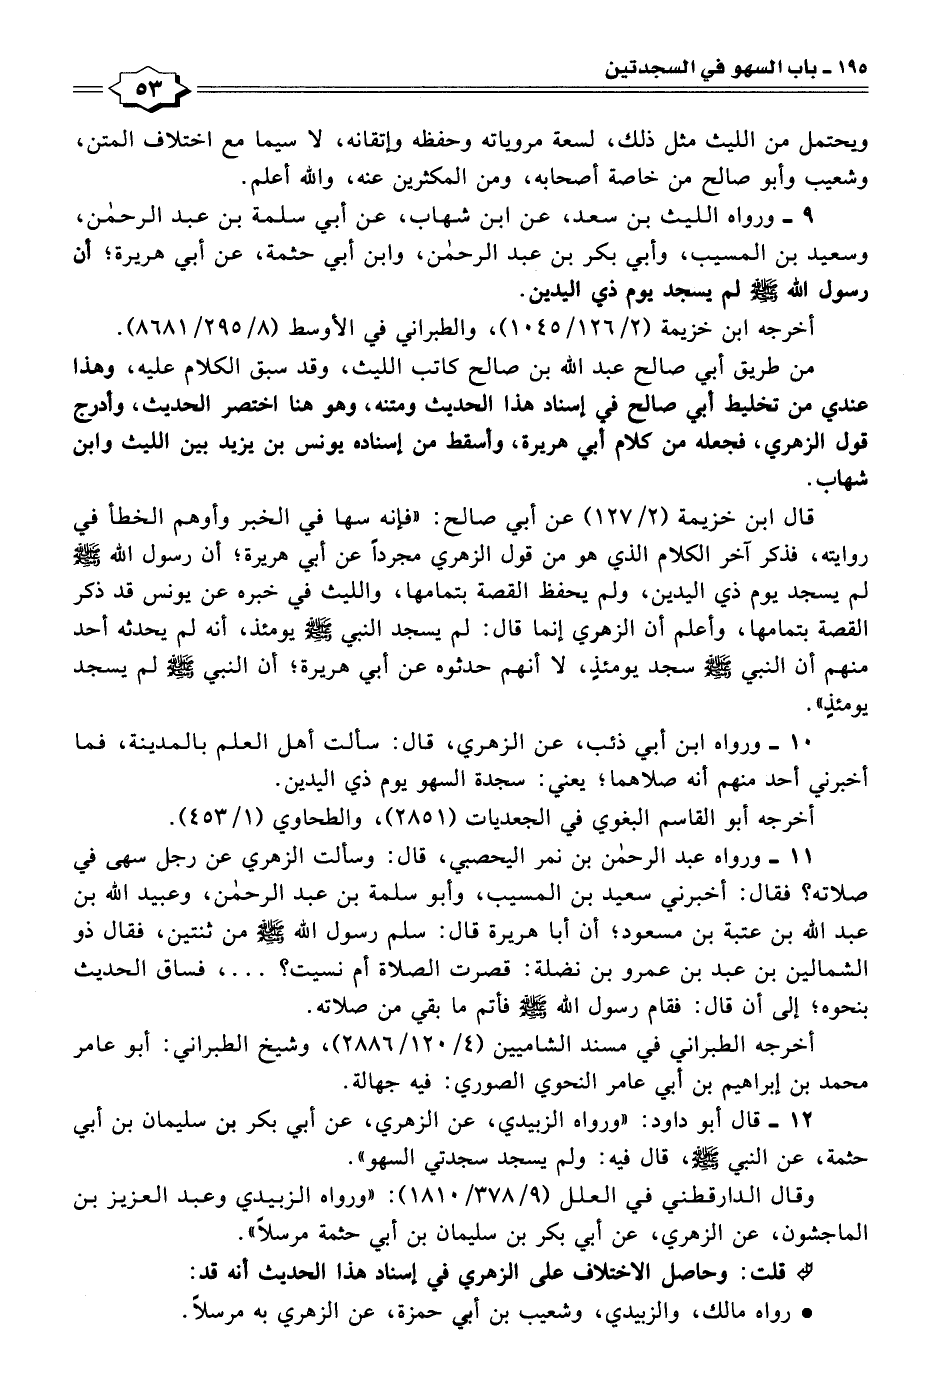 ١٩٥ - باب السهو في السجدتين
٥٣
ويحتمل من الليث مثل ذلك، لسعة مروياته وحفظه وإتقانه، لا سيما مع اختلاف المتن،
وشعيب وأبو صالح من خاصة أصحابه، ومن المكثرين عنه، والله أعلم.
٩ - ورواه الليث بن سعد، عن ابن شهاب، عن أبي سلمة بن عبد الرحمٰن،
وسعيد بن المسيب، وأبي بكر بن عبد الرحمٰن، وابن أبي حثمة، عن أبي هريرة؛ أن
رسول الله ﷺ لم يسجد يوم ذي اليدين.
أخرجه ابن خزيمة (١٠٤٥/١٢٦/٢)، والطبراني في الأوسط (٨٦٨١/٢٩٥/٨).
من طريق أبي صالح عبد الله بن صالح كاتب الليث، وقد سبق الكلام عليه، وهذا
عندي من تخليط أبي صالح في إسناد هذا الحديث ومتنه، وهو هنا اختصر الحديث، وأدرج
قول الزهري، فجعله من كلام أبي هريرة، وأسقط من إسناده يونس بن يزيد بين الليث وابن
شهاب.
قال ابن خزيمة (١٢٧/٢) عن أبي صالح: «فإنه سها في الخبر وأوهم الخطأ في
روايته، فذكر آخر الكلام الذي هو من قول الزهري مجرداً عن أبي هريرة؛ أن رسول الله ﷺ
لم يسجد يوم ذي اليدين، ولم يحفظ القصة بتمامها، والليث في خبره عن يونس قد ذكر
القصة بتمامها، وأعلم أن الزهري إنما قال: لم يسجد النبي ﷺ يومئذ، أنه لم يحدثه أحد
منهم أن النبي ﷺ سجد يومئذٍ، لا أنهم حدثوه عن أبي هريرة؛ أن النبي ﷺ لم يسجد
يومئذٍ».
١٠ - ورواه ابن أبي ذئب، عن الزهري، قال: سألت أهل العلم بالمدينة، فما
أخبرني أحد منهم أنه صلاهما؛ يعني: سجدة السهو يوم ذي اليدين.
أخرجه أبو القاسم البغوي في الجعديات (٢٨٥١)، والطحاوي (٤٥٣/١).
١١ - ورواه عبد الرحمٰن بن نمر اليحصبي، قال: وسألت الزهري عن رجل سهى في
صلاته؟ فقال: أخبرني سعيد بن المسيب، وأبو سلمة بن عبد الرحمٰن، وعبيد الله بن
عبد الله بن عتبة بن مسعود؛ أن أبا هريرة قال: سلم رسول الله ﷺ من ثنتين، فقال ذو
الشمالين بن عبد بن عمرو بن نضلة: قصرت الصلاة أم نسيت؟ ...، فساق الحديث
بنحوه؛ إلى أن قال: فقام رسول الله ﷺ فأتم ما بقي من صلاته.
أخرجه الطبراني في مسند الشاميين (٢٨٨٦/١٢٠/٤)، وشيخ الطبراني: أبو عامر
محمد بن إبراهيم بن أبي عامر النحوي الصوري: فيه جهالة.
١٢ - قال أبو داود: «ورواه الزبيدي، عن الزهري، عن أبي بكر بن سليمان بن أبي
حثمة، عن النبي ﷺ، قال فيه: ولم يسجد سجدتي السهو».
وقال الدارقطني في العلل (١٨١٠/٣٧٨/٩): «ورواه الزبيدي وعبد العزيز بن
الماجشون، عن الزهري، عن أبي بكر بن سليمان بن أبي حثمة مرسلاً».
قلت: وحاصل الاختلاف على الزهري في إسناد هذا الحديث أنه قد:
• رواه مالك، والزبيدي، وشعيب بن أبي حمزة، عن الزهري به مرسلاً.